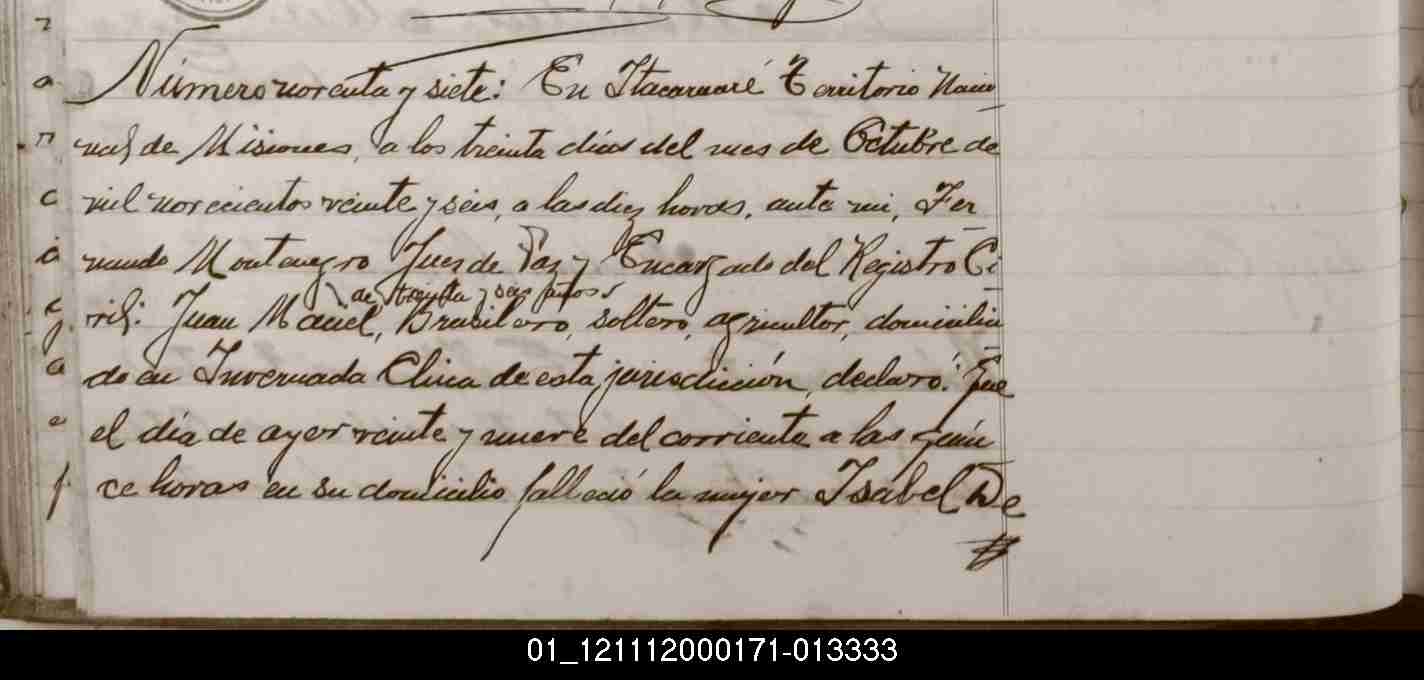 Número noventa y siete: En Itacaruaré Territorio Nacio
nal de Misiones, a los treinta días del mes de Octubre de
mil novecientos veinte y seis, a las diez horas, ante mi, Fer
nando Montenegro Juez de Paz y Encargado del Registro Ci
de treinta y seis años
vil: Juan Maciel, Brasilero, soltero, agricultor, domicilia
do en Invernada Chica de esta jurisdicción, declaró: Que
el día de ayer veinte y nueve del corriente a las quin
ce horas en su domicilio falleció la mujer Isabel De
01_121112000171-013333